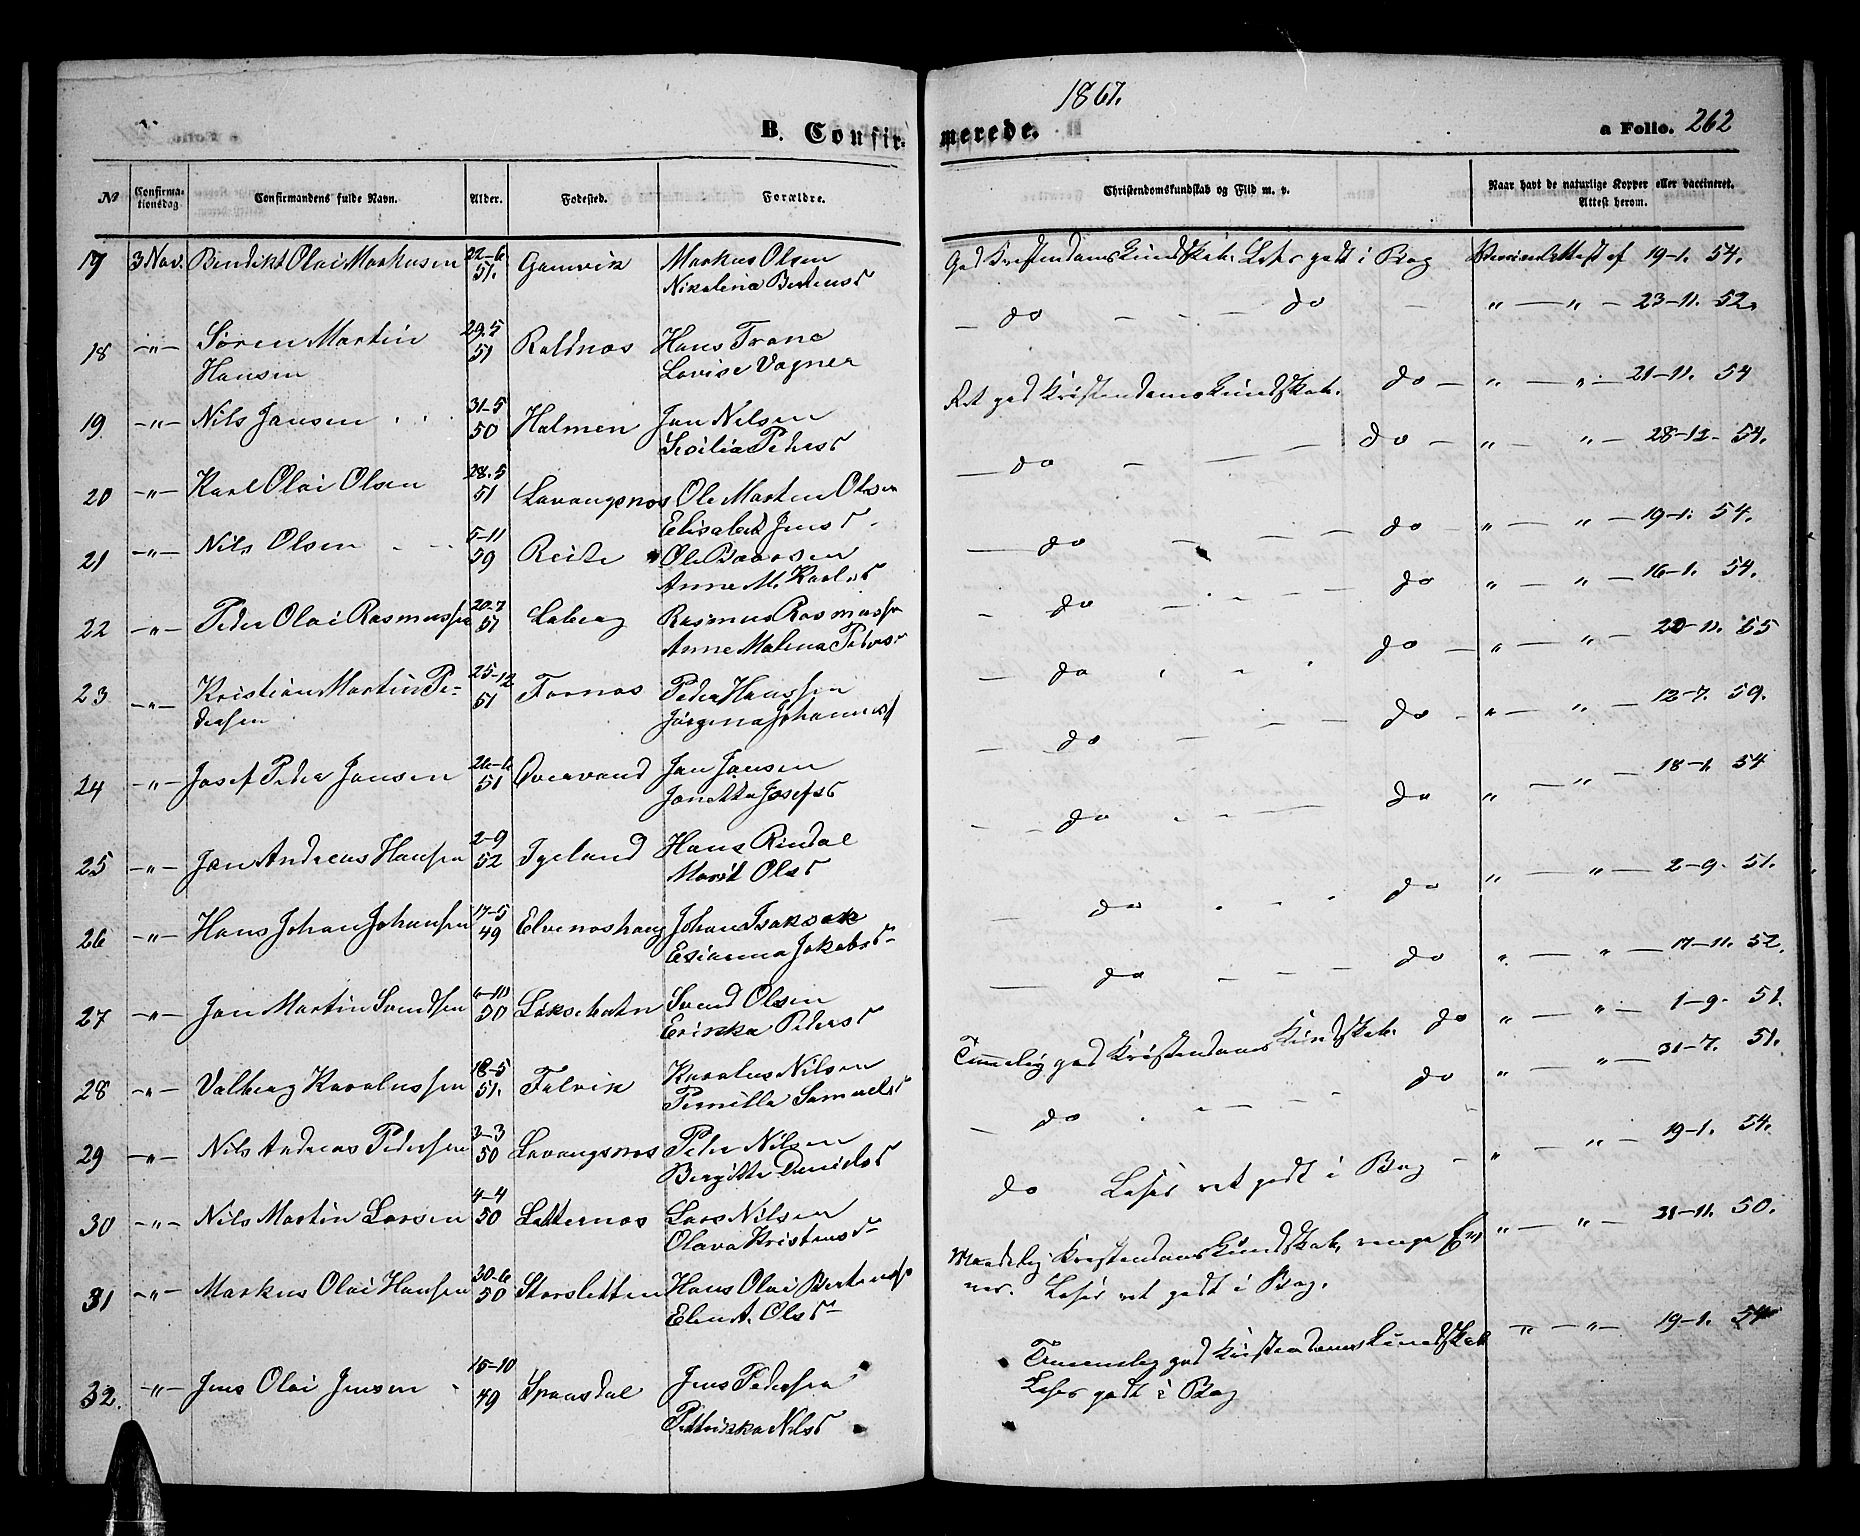 1867.
B. Confir-
merede.
a Folio. 262
No
Confirma-
tionsdag
Confirmandens fulde Navn.
Alder.
Fødested.
Forældre.
Christendomskundskab og Flid m. v.
Naar havt de naturlige Kopper eller vaccineret.
Attest herom.
17 3 Nov. Bendikt Olai Markusen 22-6 51. Gamvik Markus Olsen
Nikolina Bertensd
God Kristendomskundskab. Læser godt i Bog 19-1. 54.
18 -"- Søren Martin 29.5 51 Roldnæs Hans Trane
Hansen Lovise Vagner
- do - - - do - " - " - 23-11. 52.
19. -"- Nils Jansen 31-5 50 Holmen Jan Nilsen
Sesilia Pedersd
Ret god Kristendomskundskab. do - " - " - 21-11. 54
20 -"- Karl Olai Olsen 28.5 51 Lavangsnæs Ole Marten Olsen
Elisabet Jensd
- do - - - do - " - " - 28-12- 54.
21 -"- Nils Olsen 5-11 59 Reite Ole Baarsen
Anne M. Karlsd
- do - - - do - " - " - 19-1. 54.
22 -"- Peder Olai Rasmussen 20-7 51 Laberg Rasmus Rasmussen
Anne Malena Pedersd
- do - - - do " - " - 16-1. 54.
23 -"- Kristian Martin Pe- 25-12 51 Fornæs Peder Hanssen
dersen Jørgina Johannesd
- do do - " - " - 20-11. 65
24 -"- Josef Peder Jansen 26-6 51 Overvand Jan Jansen
Janetta Josefsd
- do - - do - " - " - 12-7. 59.
25 -"- Jan Andreas Hansen 2-9 52 Igeland Hans Rindal
Marit Olsd
- do - - do " - " - 18-1. 54
26 -"- Hans Johan Johansen 17-5 49 Elvenæshaug Johan Isaksen
Esianna Jakobsd
- do do " - " - 2-9. 51.
27 -"- Jan Martin Svendsen 6-10 50 Løksebotn Svend Olsen
Erikka Pedersd
- do - - - do " - " - 17-11. 52.
28 -"- Valberg Karolussen 18-5 51. Folvik Karolus Nilsen
Pernilla Samuelsd
Temmelig god Kristendomskundskab. do " - " - 1-9. 51.
29 -"- Nils Andreas Pedersen 3-3 50 Lavangsnæs Peder Nilsen
Birgitte Danielsd
- do do " - " - 31-7. 51.
30 -"- Nils Martin Larsen 4-4 50 Latternæs Lars Nilsen
Olava Kristensd
do Læser ret godt i Bog - " - " - 19-1. 54.
31 -"- Markus Olai Hansen 30-6 50 Storsletten Hans Olai Bertensen
Elen A. Olsd
Maadelig Kristendomskundskab, ringe Ev-
ner. Læser ret godt i Bog. " - " - 31-11. 50.
32. -"- Jens Olai Jensen 15-10 49 Spansdal Jens Pedersen
Petrikka Nilsd
Temmelig god Kristendomskundskab
Læser godt i Bog " - " - 19-1. 54